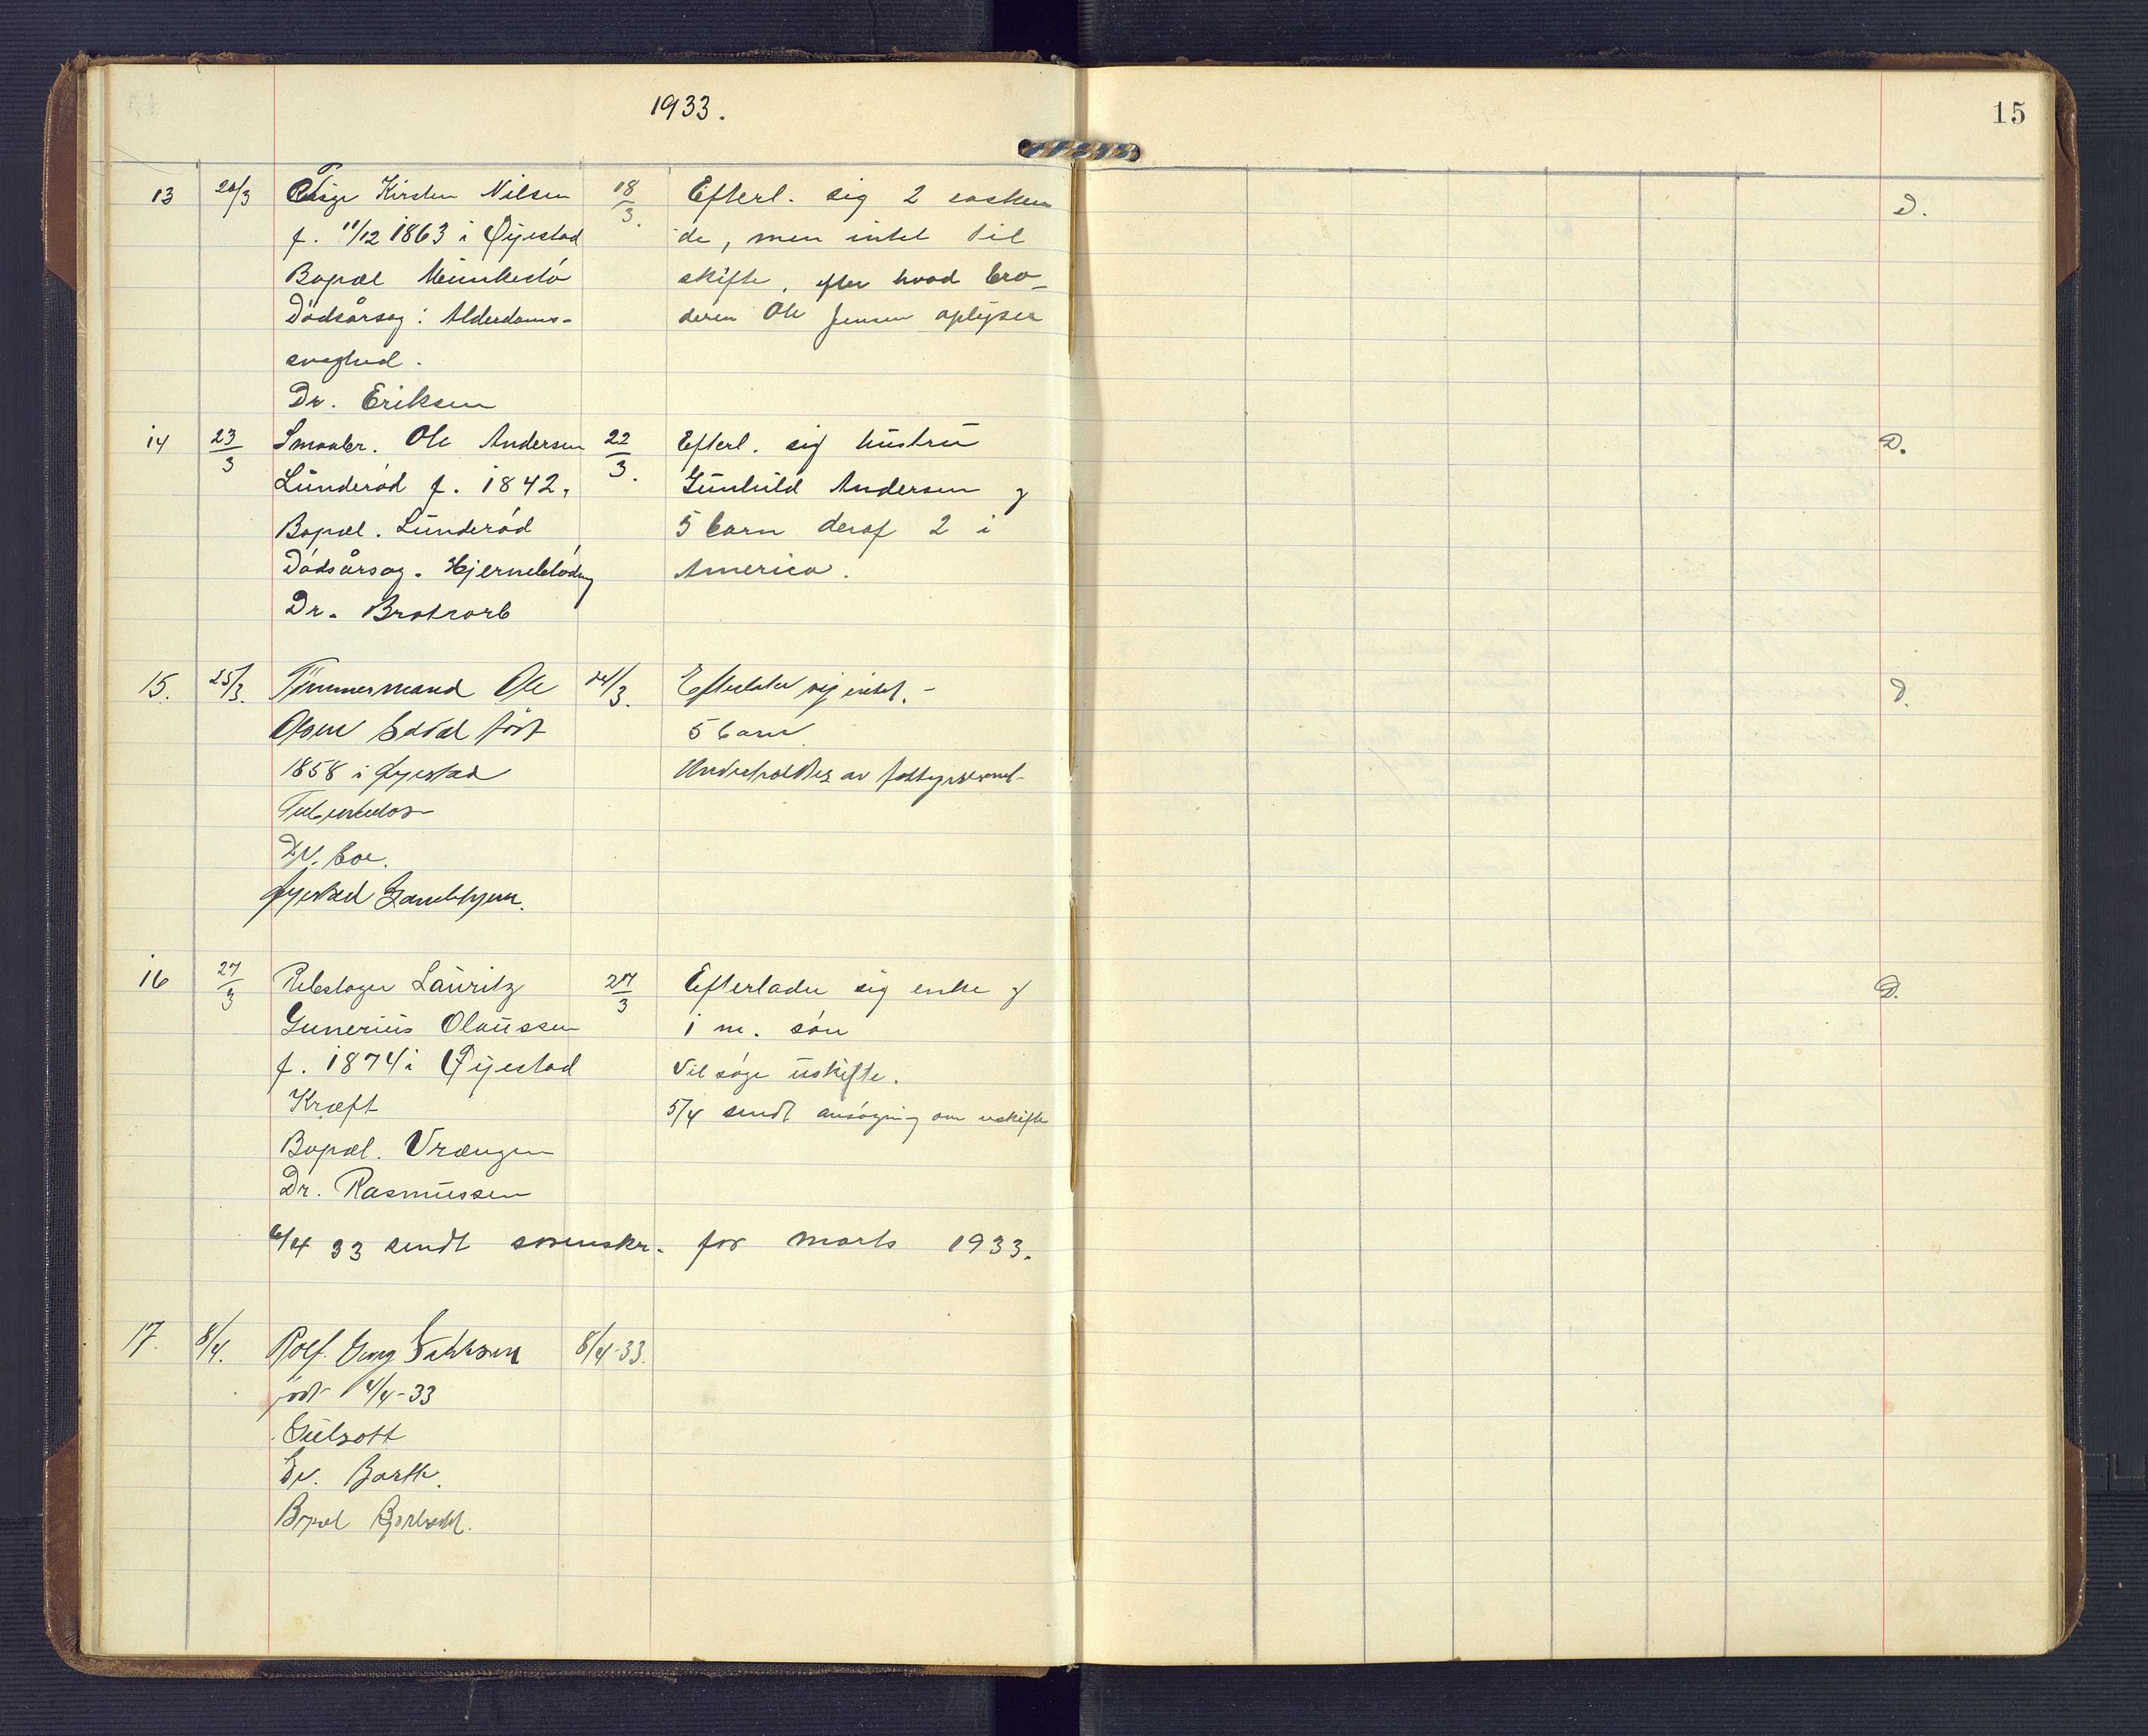 1933.
15
13 20/3 Kirsten Nilsen 18/3. Efterl. sig 2 søsken D.
f. 11/12 1863 i Øyestad de, men intet til
Bopæl skifte, efter hvad bro-
Dødsårsag: Alderdoms- deren Ole Jensen oplyser
svaghed.
Dr. Eriksen
14 23/3 Smaabr. Ole Andersen 22/3. Efterl. sig hustru D.
Lunderød f. 1842, Gunhild Andersen &
Bopæl. Lunderød 5 barn deraf 2 i
Dødsårsag. Hjerneblødng America.
Dr.
15. 25/3. Tømmermand Ole 24/3. Efterlater sig intet.- D.
Olsen født 5 barn
1858 i Øyestad Underholdtes av
Tuberkulose
Dr. Boe.
Øyestad Gamlehjem.
16 27/3 Rebslager Lauritz 27/3 Efterlader sig enke & D.
Gunerius Olaussen 1 m. søn
f. 1874 i Øyestad Vil søge uskifte.
Kræft 5/4 sendt ansøgning om uskifte
Bopæl. Vrængen
Dr. Rasmussen
6/4 33 sendt sorenskr. for marts 1933.
17. 8/4. Rolf Georg 8/4-33.
født 4/4-33
Gulsott
Dr. Barth.
Bopæl